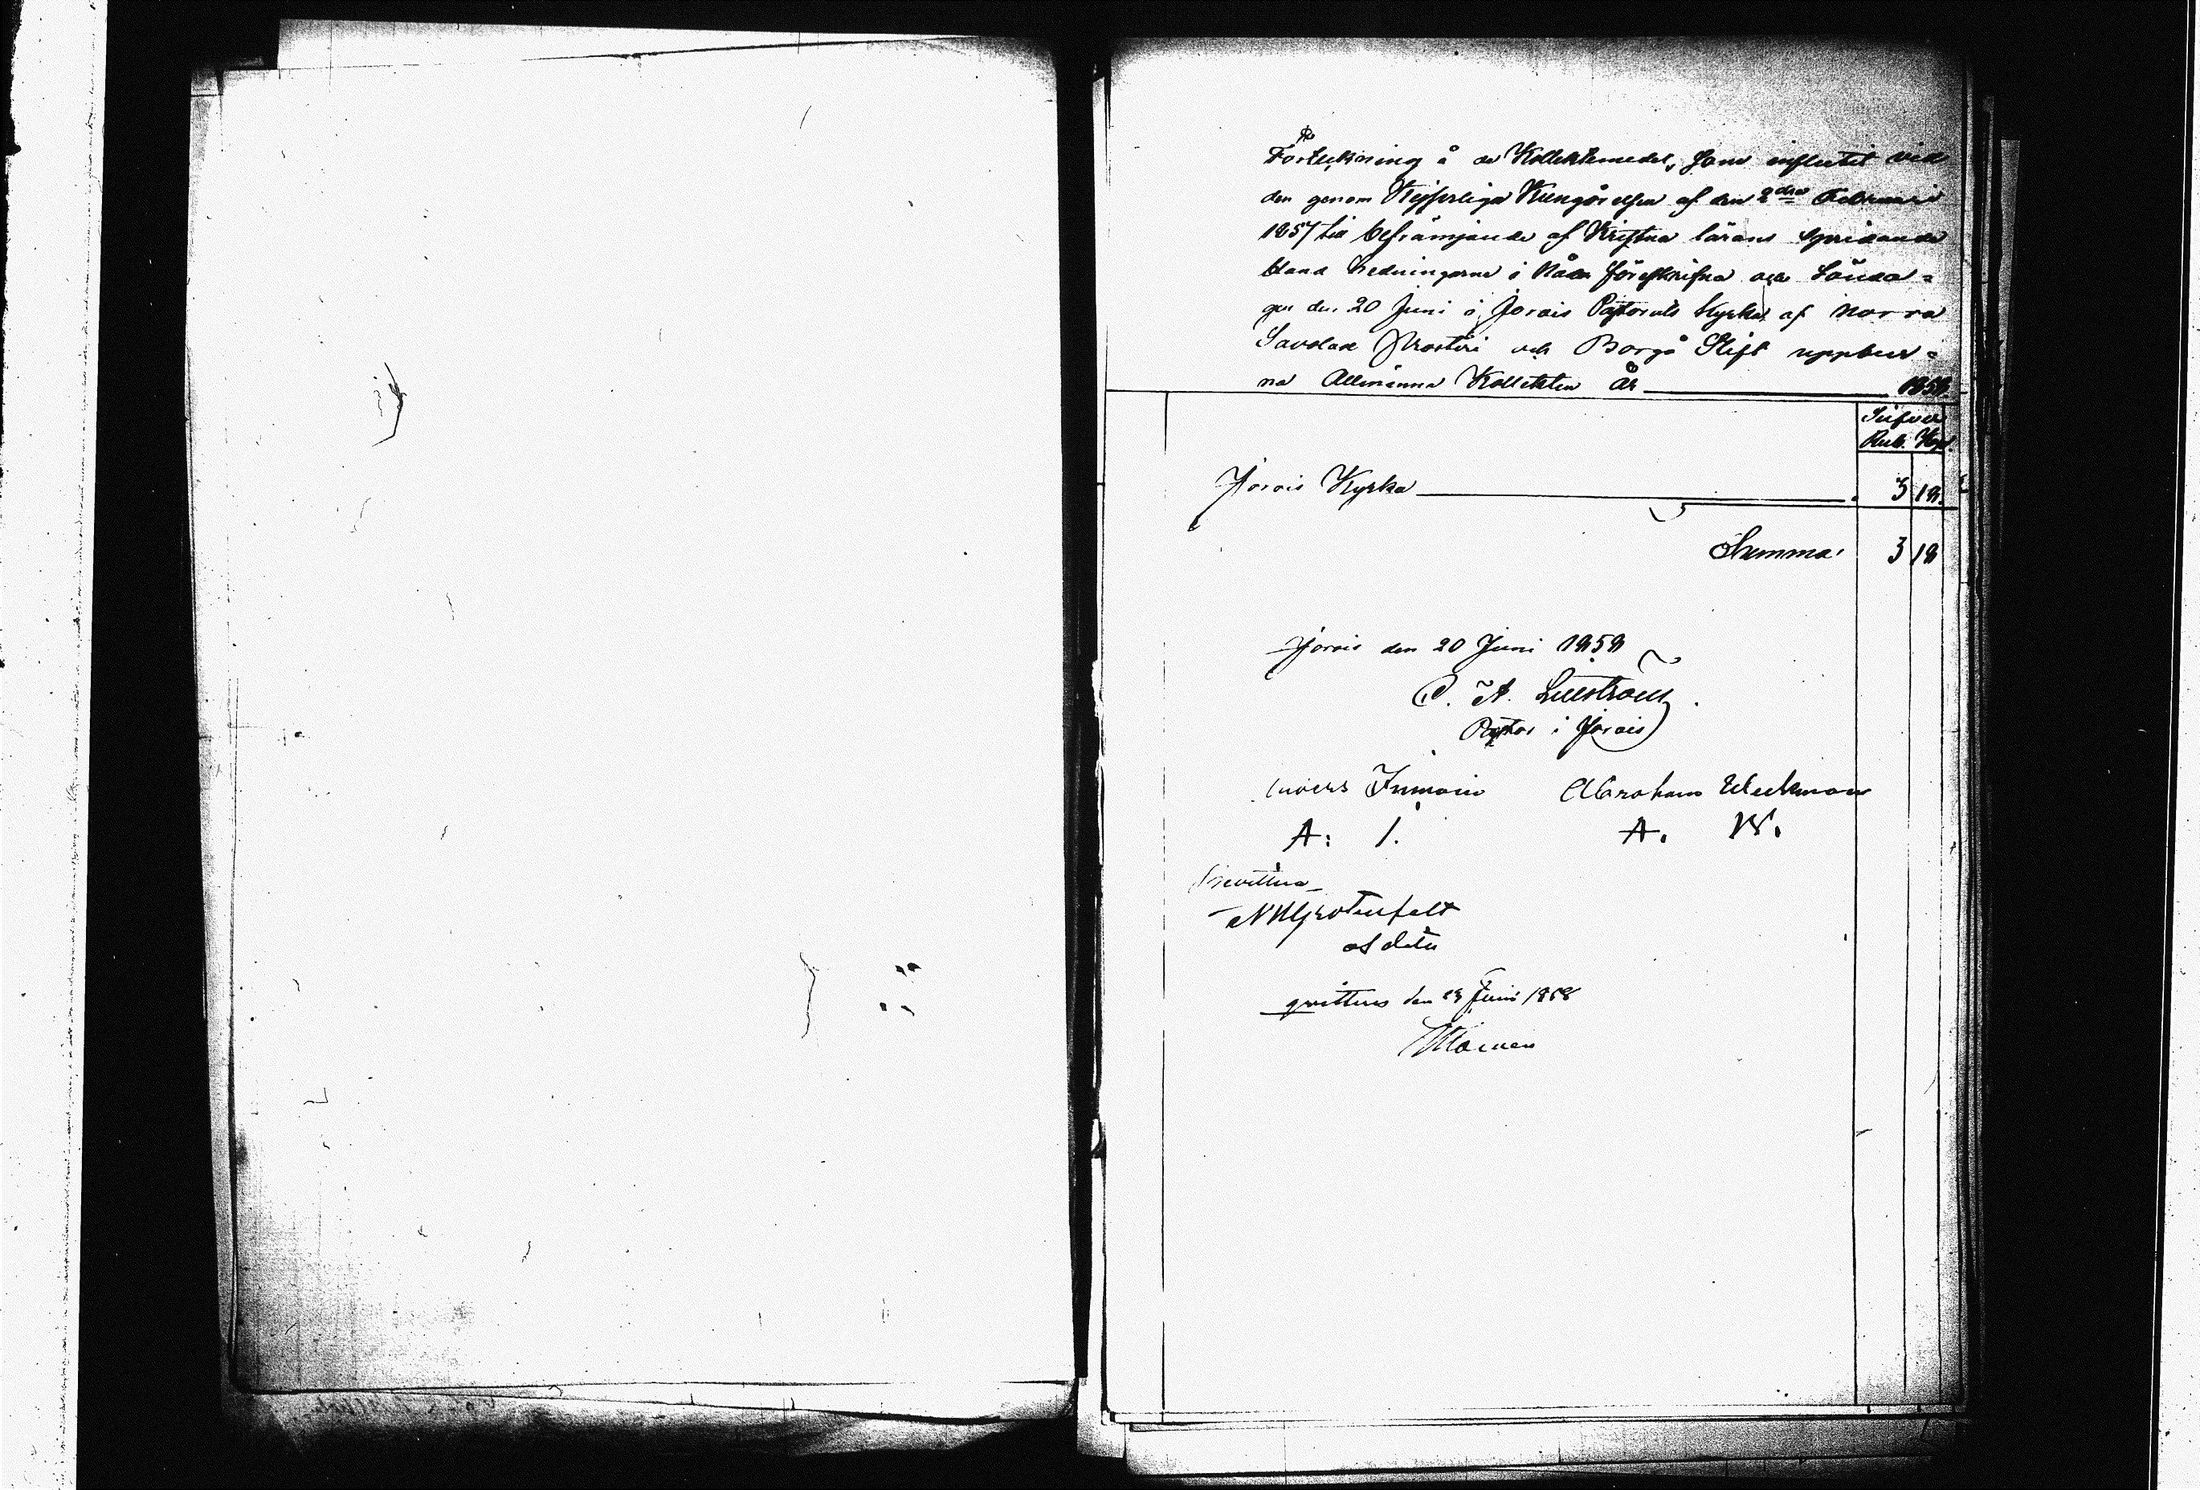 Förteckning å de Kollektmedel, som influtit vid
den genom Kejserliga Kungörelsen af den 2dra Februari
1857 till befrämjande af Kristna lärans spridande
bland hedningarne i Nåder föreskrifna och Sönda=
gen den 20 Juni i Jorois Pastorats Kyrka af Norra
Savolax Prosteri och Borgå Stift uppbur=
na Allmänna Kollekten År 1858.
Silfver
Rub. Kop.
Jorois Kyrka 3 18.
Summa 3 18
Jorois den 20 Juni 1858
P. A. Lillström
Pastor i Jorois
Anders Immoin Abraham Weckman
A: I. A. W.
N Grotenfelt
qvitteras den 29 Juni 1858